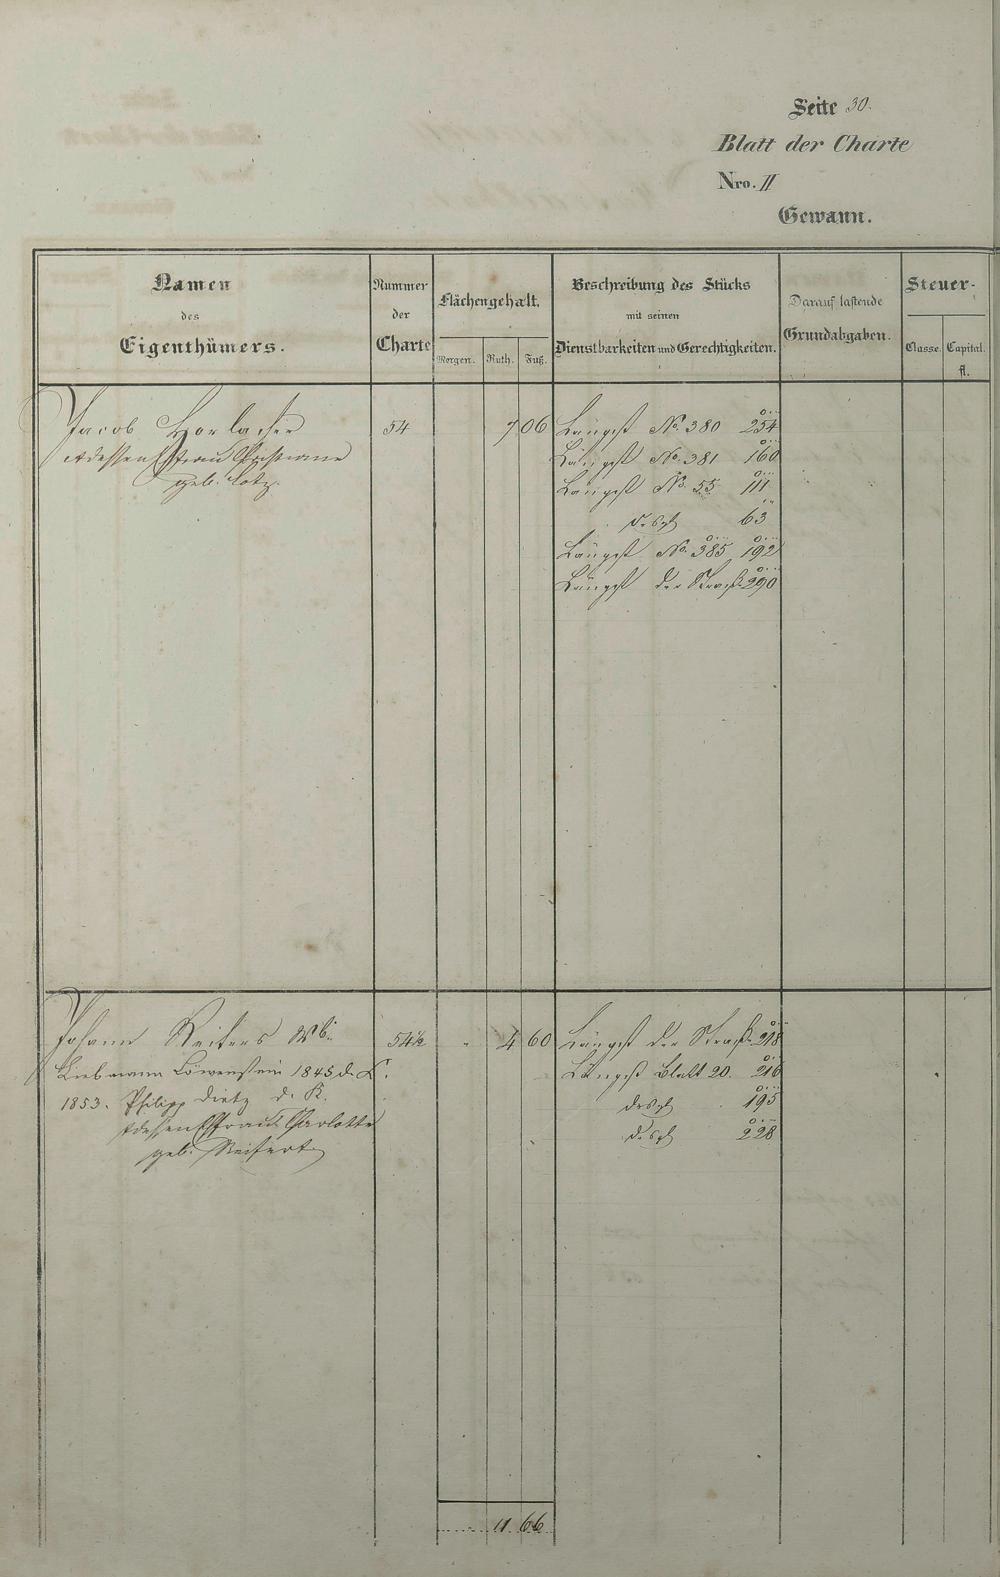 Seite 30.
Blatt der Charte
Nro. II
Gewann.
Namen
des
Eigenthümers.
Nummer
der
Charte
Flächengehalt.
Morgen. Ruth. Fuß.
Beschreibung des Stücks
mit seinen
Dienstbarkeiten und Gerechtigkeiten.
Darauf lastende
Grundabgaben.
Steuer-
Classe. Capital.
fl.
Jacob Horlacher 54 7 06 Längst No. 380 254
Ehefrau Christiane Längst No. 381 160
geb. Lotz. Längst No. 55 111
desgl 63
Längst No. 385 192
Längst der Straße 290
Johann Reiters Wb. 54½ 4 60 Längst der Straße 218
Liebmann Löwenstein 1845 d. K. Längst Blatt 20. 216
1853. Philipp Dietz d. K. desgl 195
Ehefrau Charlotte desgl 228
geb. Reifert
11 66